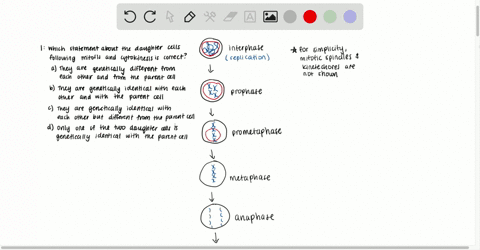 1. Which statement about the daughter cells
following mitosis and cytokinesis is correct?
a) They are genetically different from
each other and from the parent cell
b) They are genetically identical with each
other and with the parent cell
c) They are genetically identical with
each other but different from the parent cell
d) Only one of the two daughter cells is
genetically identical with the parent cell
interphase
(replication)
prophase
prometaphase
metaphase
anaphase
* For simplicity,
mitotic spindles &
kinetochores are
not shown